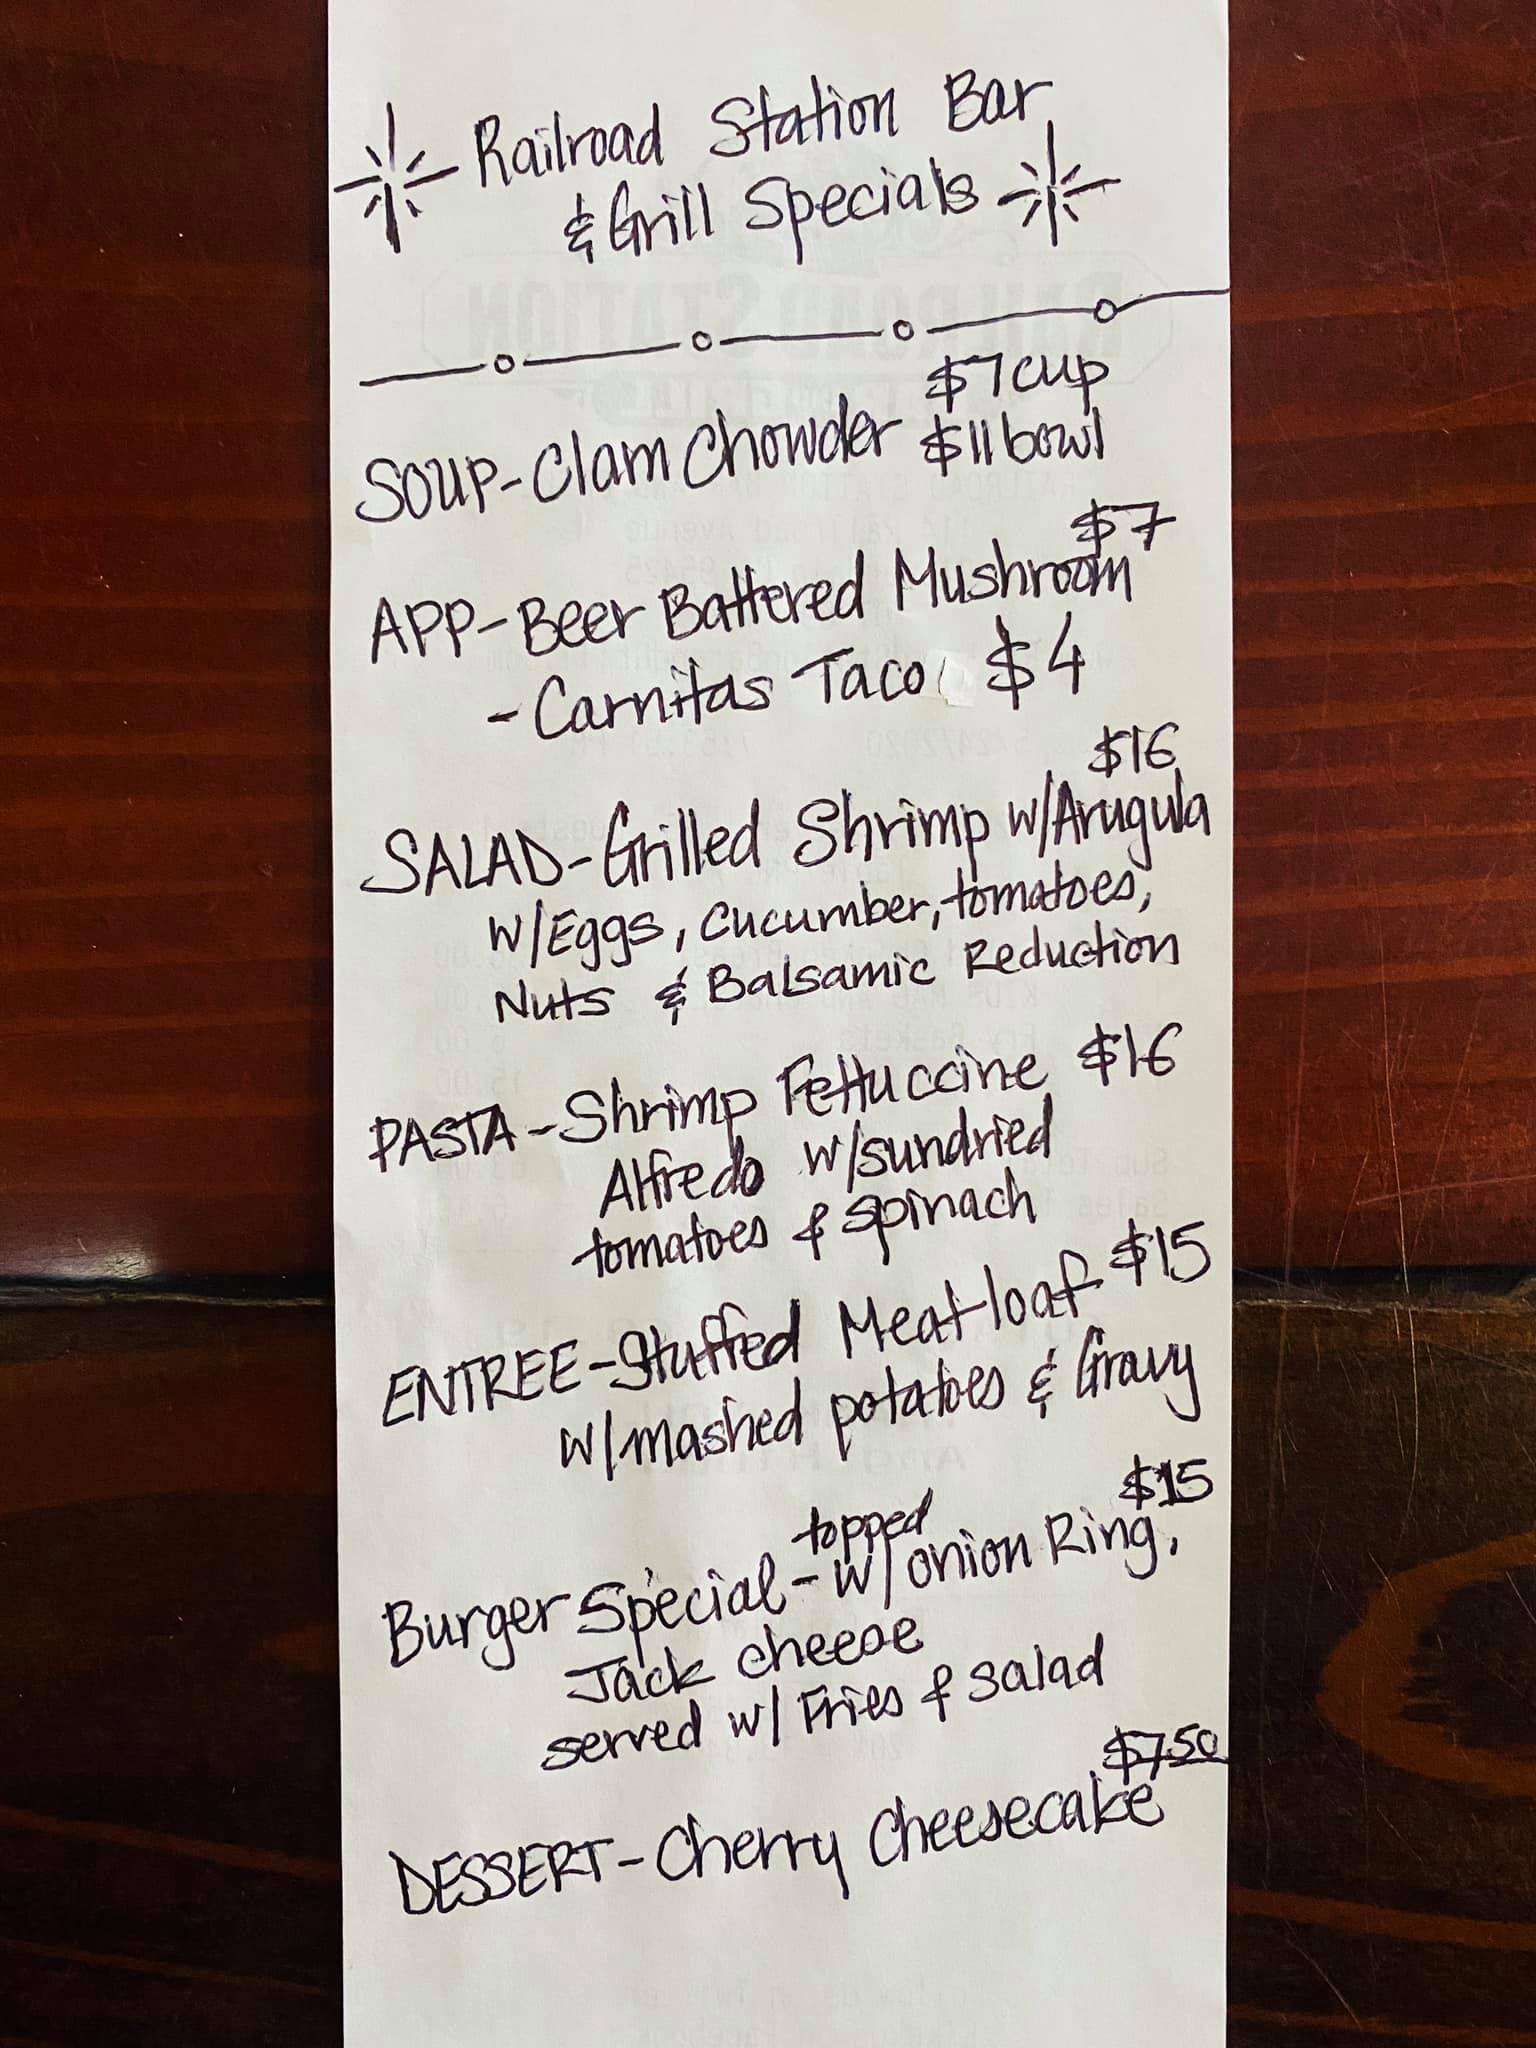 Railroad Station Bar
& Grill Specials
$7 cup
SOUP - Clam Chowder $11 bowl
$7
APP - Beer Battered Mushroom
- Carnitas Taco $4
$16
SALAD - Grilled Shrimp w/Arugula
w/Eggs, Cucumber, tomatoes,
Nuts & Balsamic Reduction
PASTA - Shrimp Fettuccine $16
Alfredo w/sundried
tomatoes & spinach
ENTREE - Stuffed Meatloaf $15
w/mashed potatoes & Gravy
$15
topped
Burger Special - w/ onion Ring,
Jack cheese
served w/ Fries & salad
$7.50
DESSERT - Cherry Cheesecake